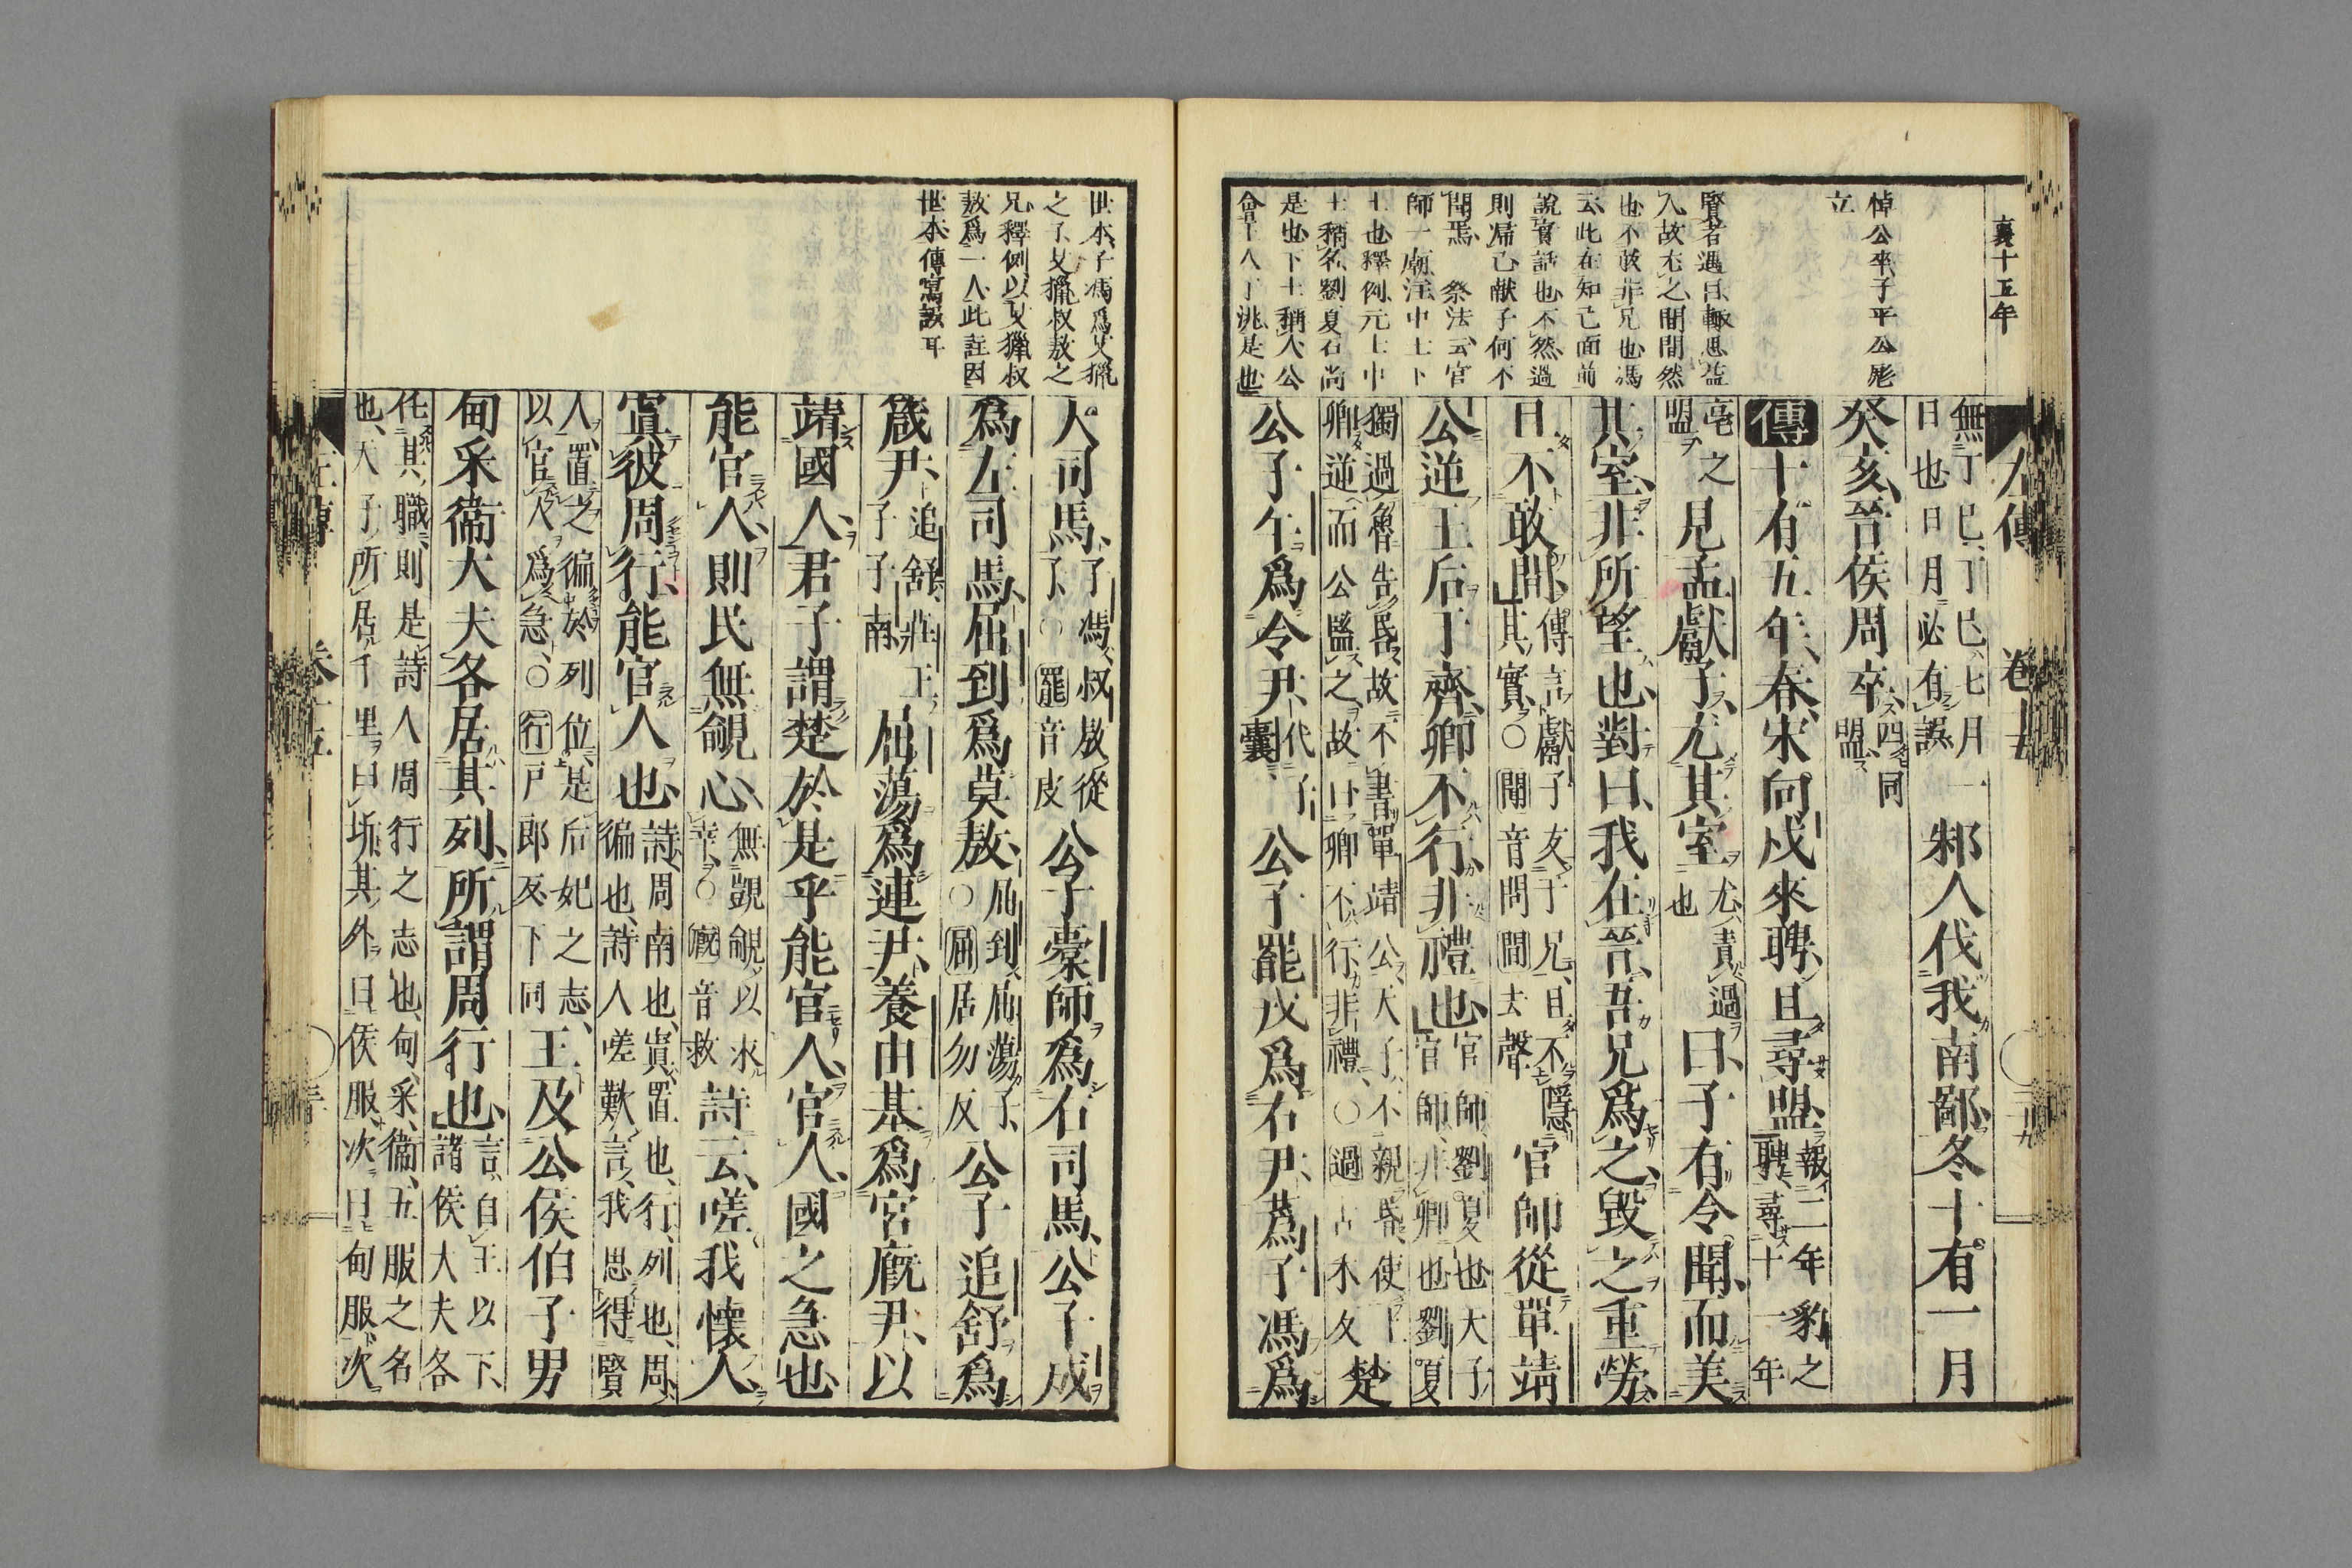 襄十五年
悼公卒子平公彪
立
賢者遇日輙思益
入故尤之聞間然
也不敢非兄也馮
云此在知己面前
說實話也不然過
則帰己献子何不
聞焉 祭法云官
師一廟注中士下
士也釋例元士中
士稱名劉夏石尚
是也下士稱人公
會王人于洮是也
左傳 卷十五
無丁巳丁巳七月一
日也日月必有誤
邾人伐我南鄙冬十有一月
癸亥晉侯周卒
四同
盟
傳十有五年春宋向戌來聘且尋盟
報二年豹之
聘尋十一年
亳之
盟
見孟獻子尤其室
尤責過
也
曰子有令聞而美
其室非所望也對曰我在晉吾兄爲之毀之重勞
且不敢間
傳言獻子友于兄且不隱
其實○聞音問間去聲
官師從單靖
公逆王后于齊卿不行非禮也
官師劉夏也天子
官師非卿也劉夏
獨過魯告昏故不書單靖公天子不親昏使上
卿逆而公監之故曰卿不行非禮○過古禾夂
楚
公子午爲令尹
代子
囊
公子罷戎爲右尹蔿子馮爲
世本子馮爲艾獵
之子艾獵叔敖之
兄釋例以艾獵叔
敖爲一人此註因
世本傳寫誤耳
大司馬
子馮叔敖從
子○罷音皮
公子橐師爲右司馬公子成
爲左司馬屈到爲莫敖
屈到屈蕩子
○屈居勿反
公子追舒爲
箴尹
追舒莊王
子子南
屈蕩爲連尹養由基爲宮廐尹以
靖國人君子謂楚於是乎能官人官人國之急也
能官人則民無覦心
無覬覦以求
幸○廐音救
詩云嗟我懷人
寘彼周行能官人也
詩周南也寘置也行列也周
徧也詩人嗟歎言我思得賢
人置之徧於列位是后妃之志
以官人爲急○行戸郎反下同
王及公侯伯子男
甸采衞大夫各居其列所謂周行也
言自王以下
諸侯大夫各
任其職則是詩人周行之志也甸采衞五服之名
也天子所居千里曰圻其外曰侯服次曰甸服次